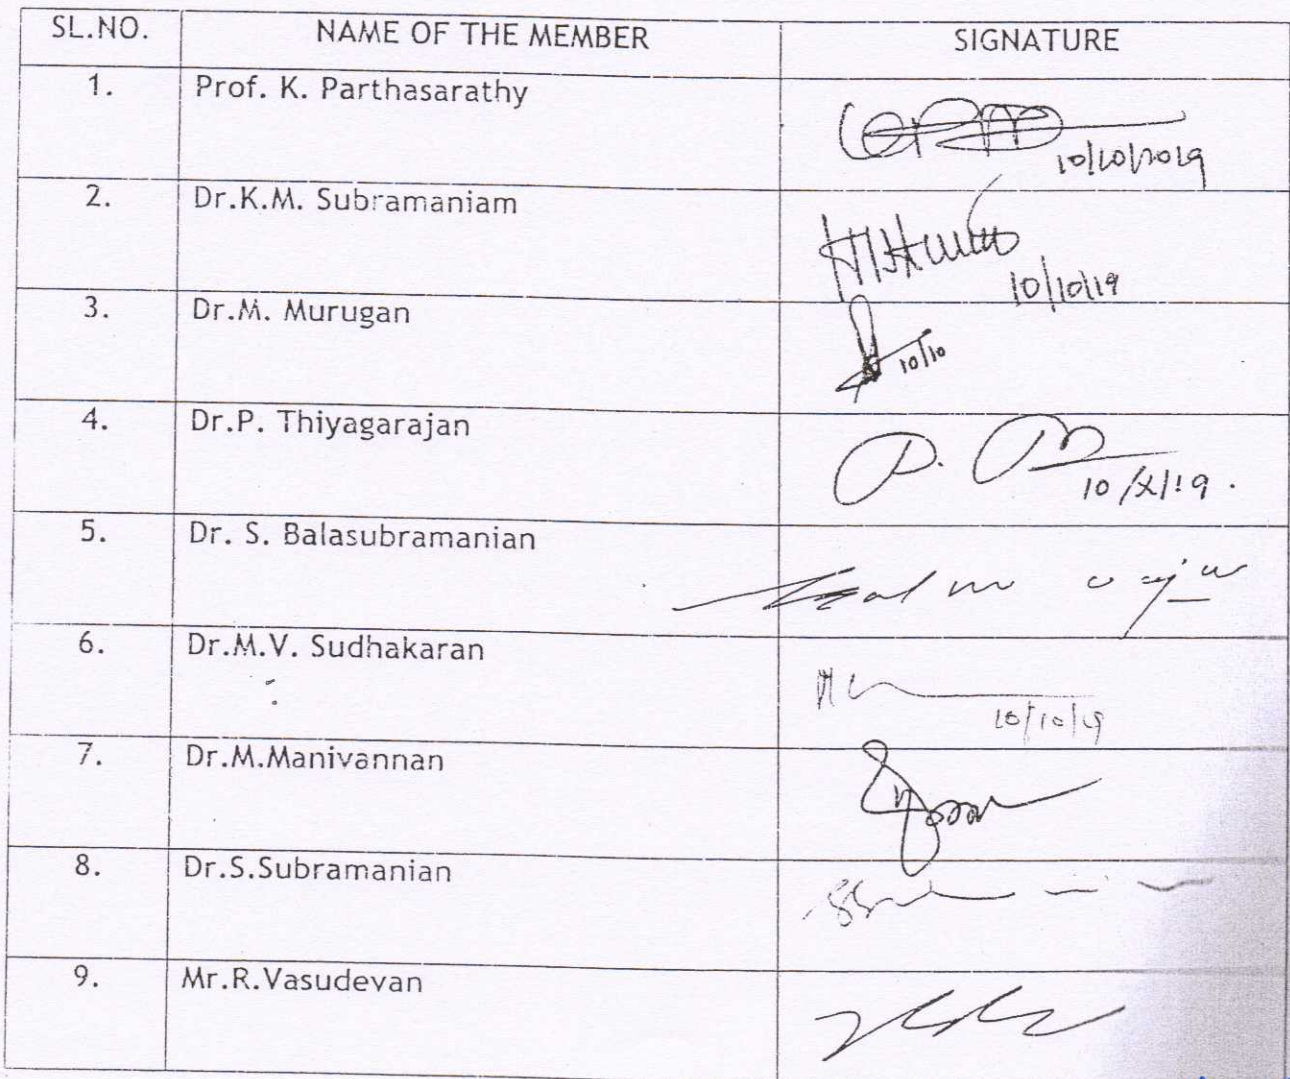 SL.NO. NAME OF THE MEMBER SIGNATURE
1. Prof. K. Parthasarathy
10/10/2019
2. Dr.K.M. Subramaniam
10/10/19
3. Dr.M. Murugan
10/10
4. Dr.P. Thiyagarajan
10/X/19.
5. Dr. S. Balasubramanian
6. Dr.M.V. Sudhakaran
10/10/19
7. Dr.M.Manivannan
8. Dr.S.Subramanian
9. Mr.R.Vasudevan